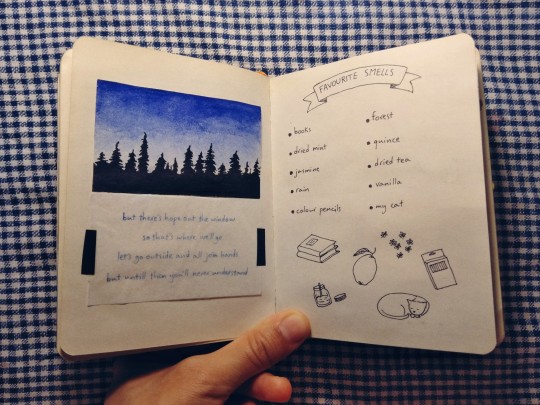 but there's hope out the window
so that's where we'll go
let's go outside and all join hands
but untill then you'll never understand
FAVOURITE SMELLS
books
dried mint
jasmine
rain
colour pencils
forest
quince
dried tea
vanilla
my cat